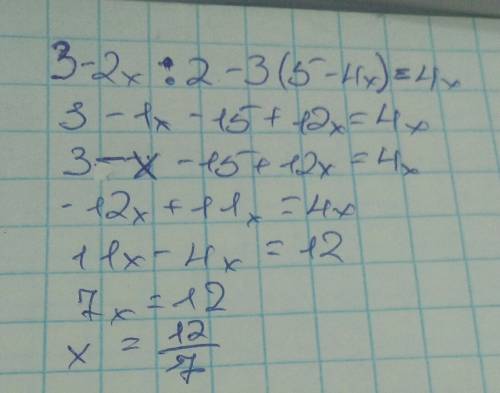 3-2x:2-3(5-4x)=4x
3-1x-15+12x=4x
3-x-15+12x=4x
-12x+11x=4x
11x-4x=12
7x=12
x=12/7